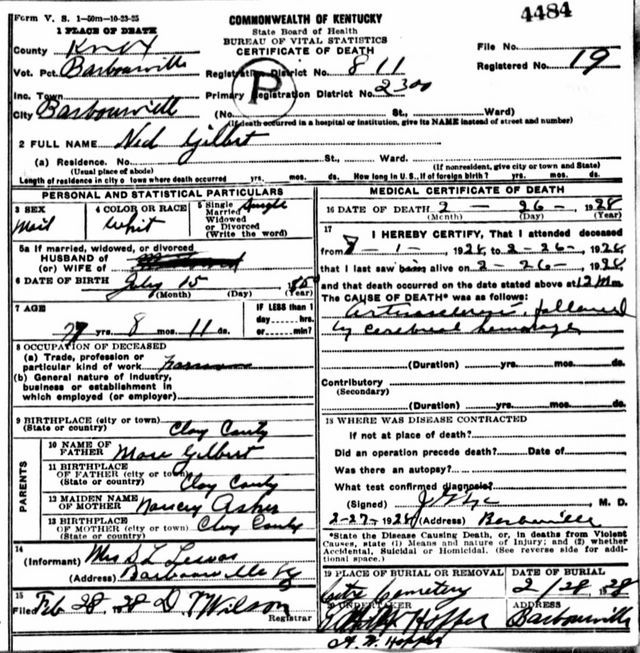 Form V. S. 1-50m-10-23-25
4484
COMMONWEALTH OF KENTUCKY
State Board of Health
BUREAU OF VITAL STATISTICS
CERTIFICATE OF DEATH
1 PLACE OF DEATH
County Knox
File No.
Vot. Pct. Barbourville
Registration District No. 811
Registered No. 19
Inc. Town
Primary Registration District No. 2300
P
City Barbourville
(No. St., Ward)
(If death occurred in a hospital or institution, give its NAME instead of street and number)
2 FULL NAME Ned Gilbert
(a) Residence. No. St., Ward.
(Usual place of abode) (If nonresident, give city or town and State)
Length of residence in city o town where death occurred yrs. mos. ds. How long in U.S., if of foreign birth? yrs. mos. ds.
PERSONAL AND STATISTICAL PARTICULARS
3 SEX 4 COLOR OR RACE 5 Single Married Widowed or Divorced (Write the word)
Mail Whit Single
5a If married, widowed, or divorced
HUSBAND of
(or) WIFE of
6 DATE OF BIRTH July 15
(Month) (Day) (Year)
7 AGE IF LESS than 1
day hrs.
yrs. 8 mos. 11 ds. or min.?
8 OCCUPATION OF DECEASED
(a) Trade, profession or
particular kind of work
(b) General nature of industry,
business or establishment in
which employed (or employer)
9 BIRTHPLACE (city or town)
(State or country) Clay County
PARENTS
10 NAME OF
FATHER Gilbert
11 BIRTHPLACE
OF FATHER (city or town)
(State or country) Clay County
12 MAIDEN NAME
OF MOTHER Nancy Asher
13 BIRTHPLACE
OF MOTHER (City or town)
(State or Country) Clay County
14
(Informant) Mrs
(Address) Barbourville Ky
15
Filed Feb 28, 1928 D T Wilson
Registrar
MEDICAL CERTIFICATE OF DEATH
16 DATE OF DEATH 2 - 26 - 1928
(Month) (Day) (Year)
17 I HEREBY CERTIFY, That I attended deceased
from - 1 -, 1928, to 2-26-, 1928,
that I last saw alive on 2-26-, 1928,
and that death occurred on the date stated above at 12 M m.
The CAUSE OF DEATH* was as follows:
followed
by cerebral hemorage
(Duration) yrs. mos. ds.
Contributory
(Secondary)
(Duration) yrs. mos. ds.
18 WHERE WAS DISEASE CONTRACTED
If not at place of death?
Did an operation precede death? Date of
Was there an autopsy?
What test confirmed diagnosis?
(Signed) M. D.
2-27-1928 (Address) Barbourville
*State the Disease Causing Death, or, in deaths from Violent
Causes, state (1) Means and nature of Injury; and (2) whether
Accidental, Suicidal or Homicidal. (See reverse side for addi-
tional space.)
19 PLACE OF BURIAL OR REMOVAL DATE OF BURIAL
Cemetery 2/28 1928
20 UNDERTAKER ADDRESS
Hopper Barbourville
Hopper